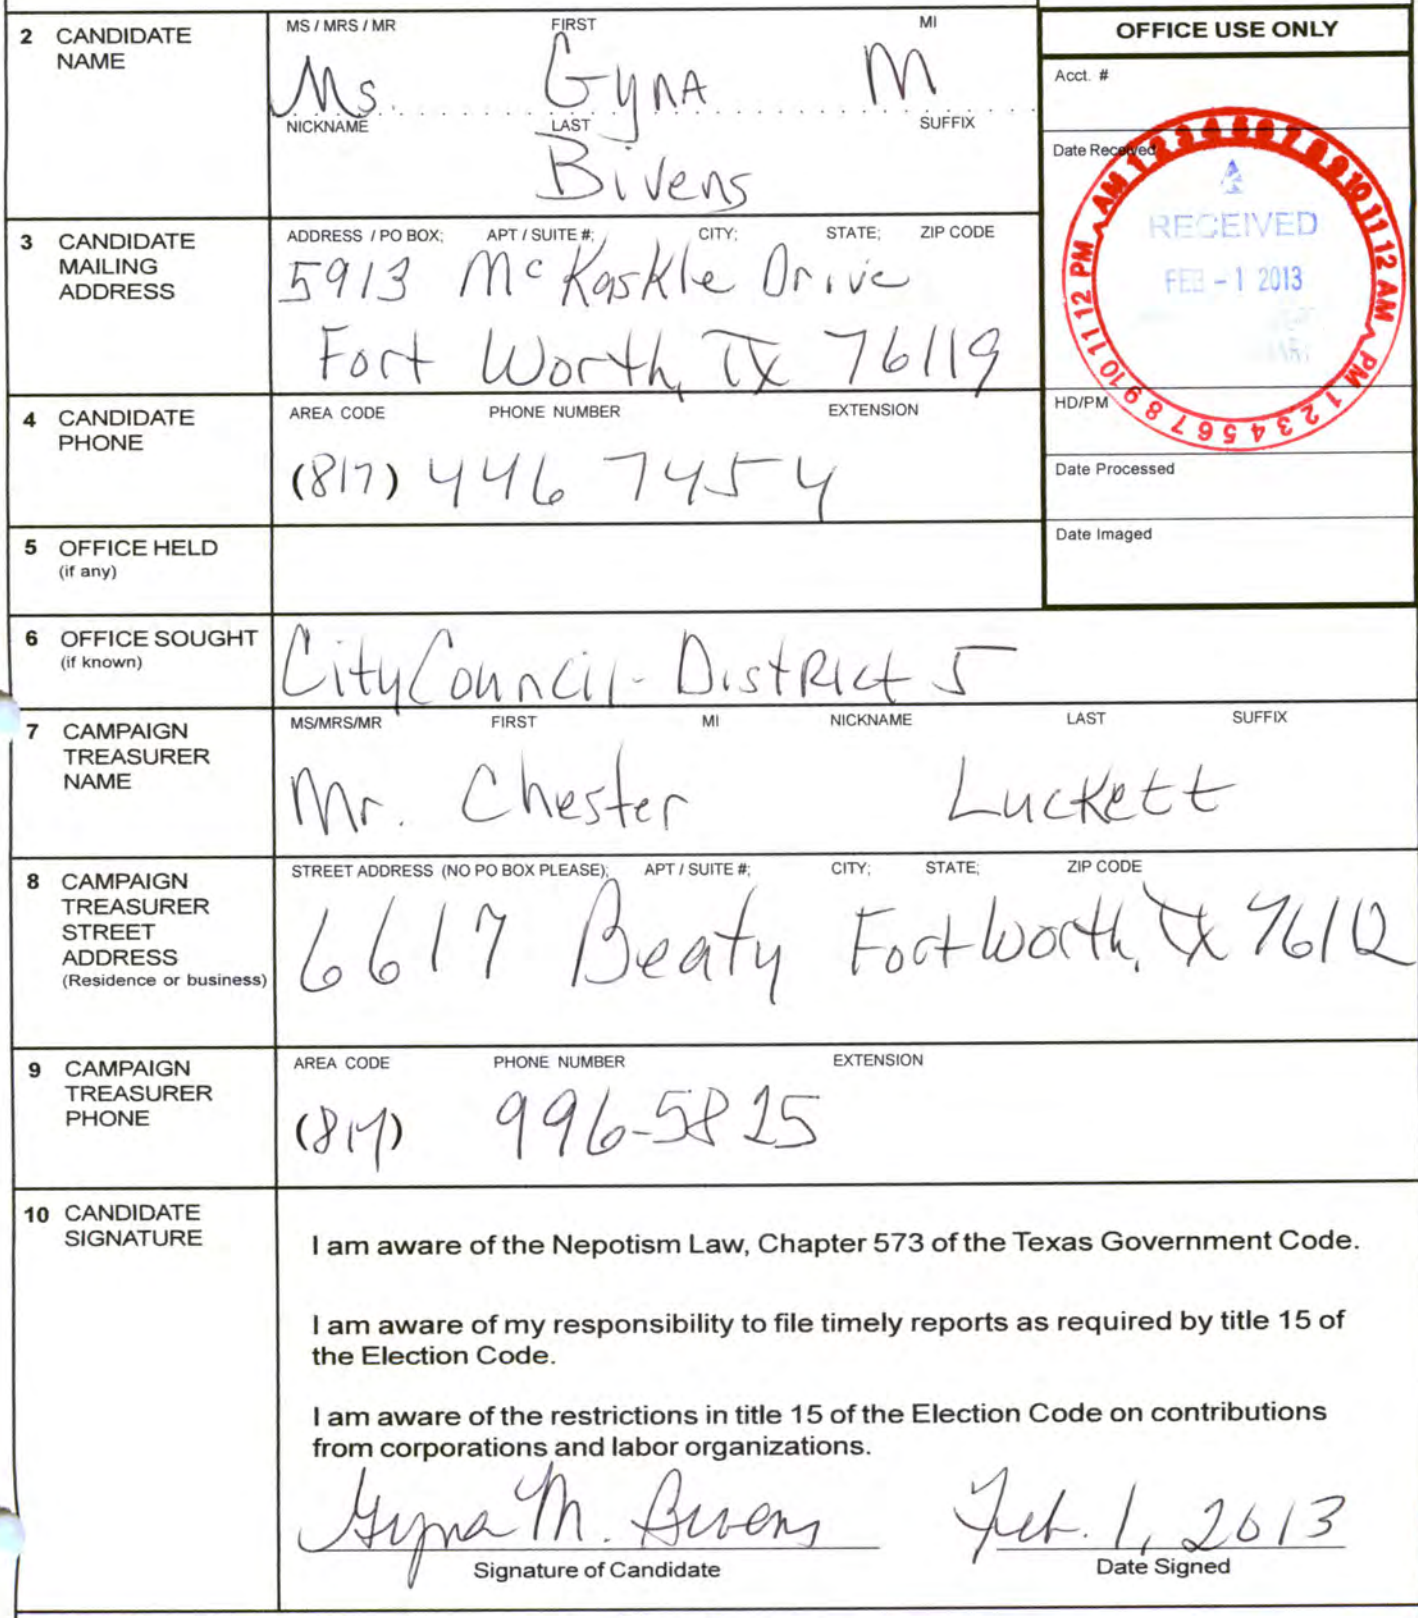 2 CANDIDATE NAME
MS / MRS / MR FIRST MI
Ms. Gyna M
NICKNAME LAST SUFFIX
Bivens
OFFICE USE ONLY
Acct. #
Date Received
AM 1 2 3 4 5 6 7 8 9 10 11 12 AM PM 1 2 3 4 5 6 7 8 9 10 11 12 PM
RECEIVED
FEB - 1 2013
HD/PM
Date Processed
Date Imaged
3 CANDIDATE MAILING ADDRESS
ADDRESS / PO BOX; APT / SUITE #; CITY; STATE; ZIP CODE
5913 McKaskle Drive
Fort Worth, TX 76119
4 CANDIDATE PHONE
AREA CODE PHONE NUMBER EXTENSION
(817) 446 7454
5 OFFICE HELD
(if any)
6 OFFICE SOUGHT
(if known)
City Council - District 5
7 CAMPAIGN TREASURER NAME
MS/MRS/MR FIRST MI NICKNAME LAST SUFFIX
Mr. Chester Luckett
8 CAMPAIGN TREASURER STREET ADDRESS
(Residence or business)
STREET ADDRESS (NO PO BOX PLEASE); APT / SUITE #; CITY; STATE; ZIP CODE
6617 Beaty Fort Worth, TX 76112
9 CAMPAIGN TREASURER PHONE
AREA CODE PHONE NUMBER EXTENSION
(817) 996-5825
10 CANDIDATE SIGNATURE
I am aware of the Nepotism Law, Chapter 573 of the Texas Government Code.
I am aware of my responsibility to file timely reports as required by title 15 of
the Election Code.
I am aware of the restrictions in title 15 of the Election Code on contributions
from corporations and labor organizations.
Gyna M. Bivens Feb. 1, 2013
Signature of Candidate Date Signed